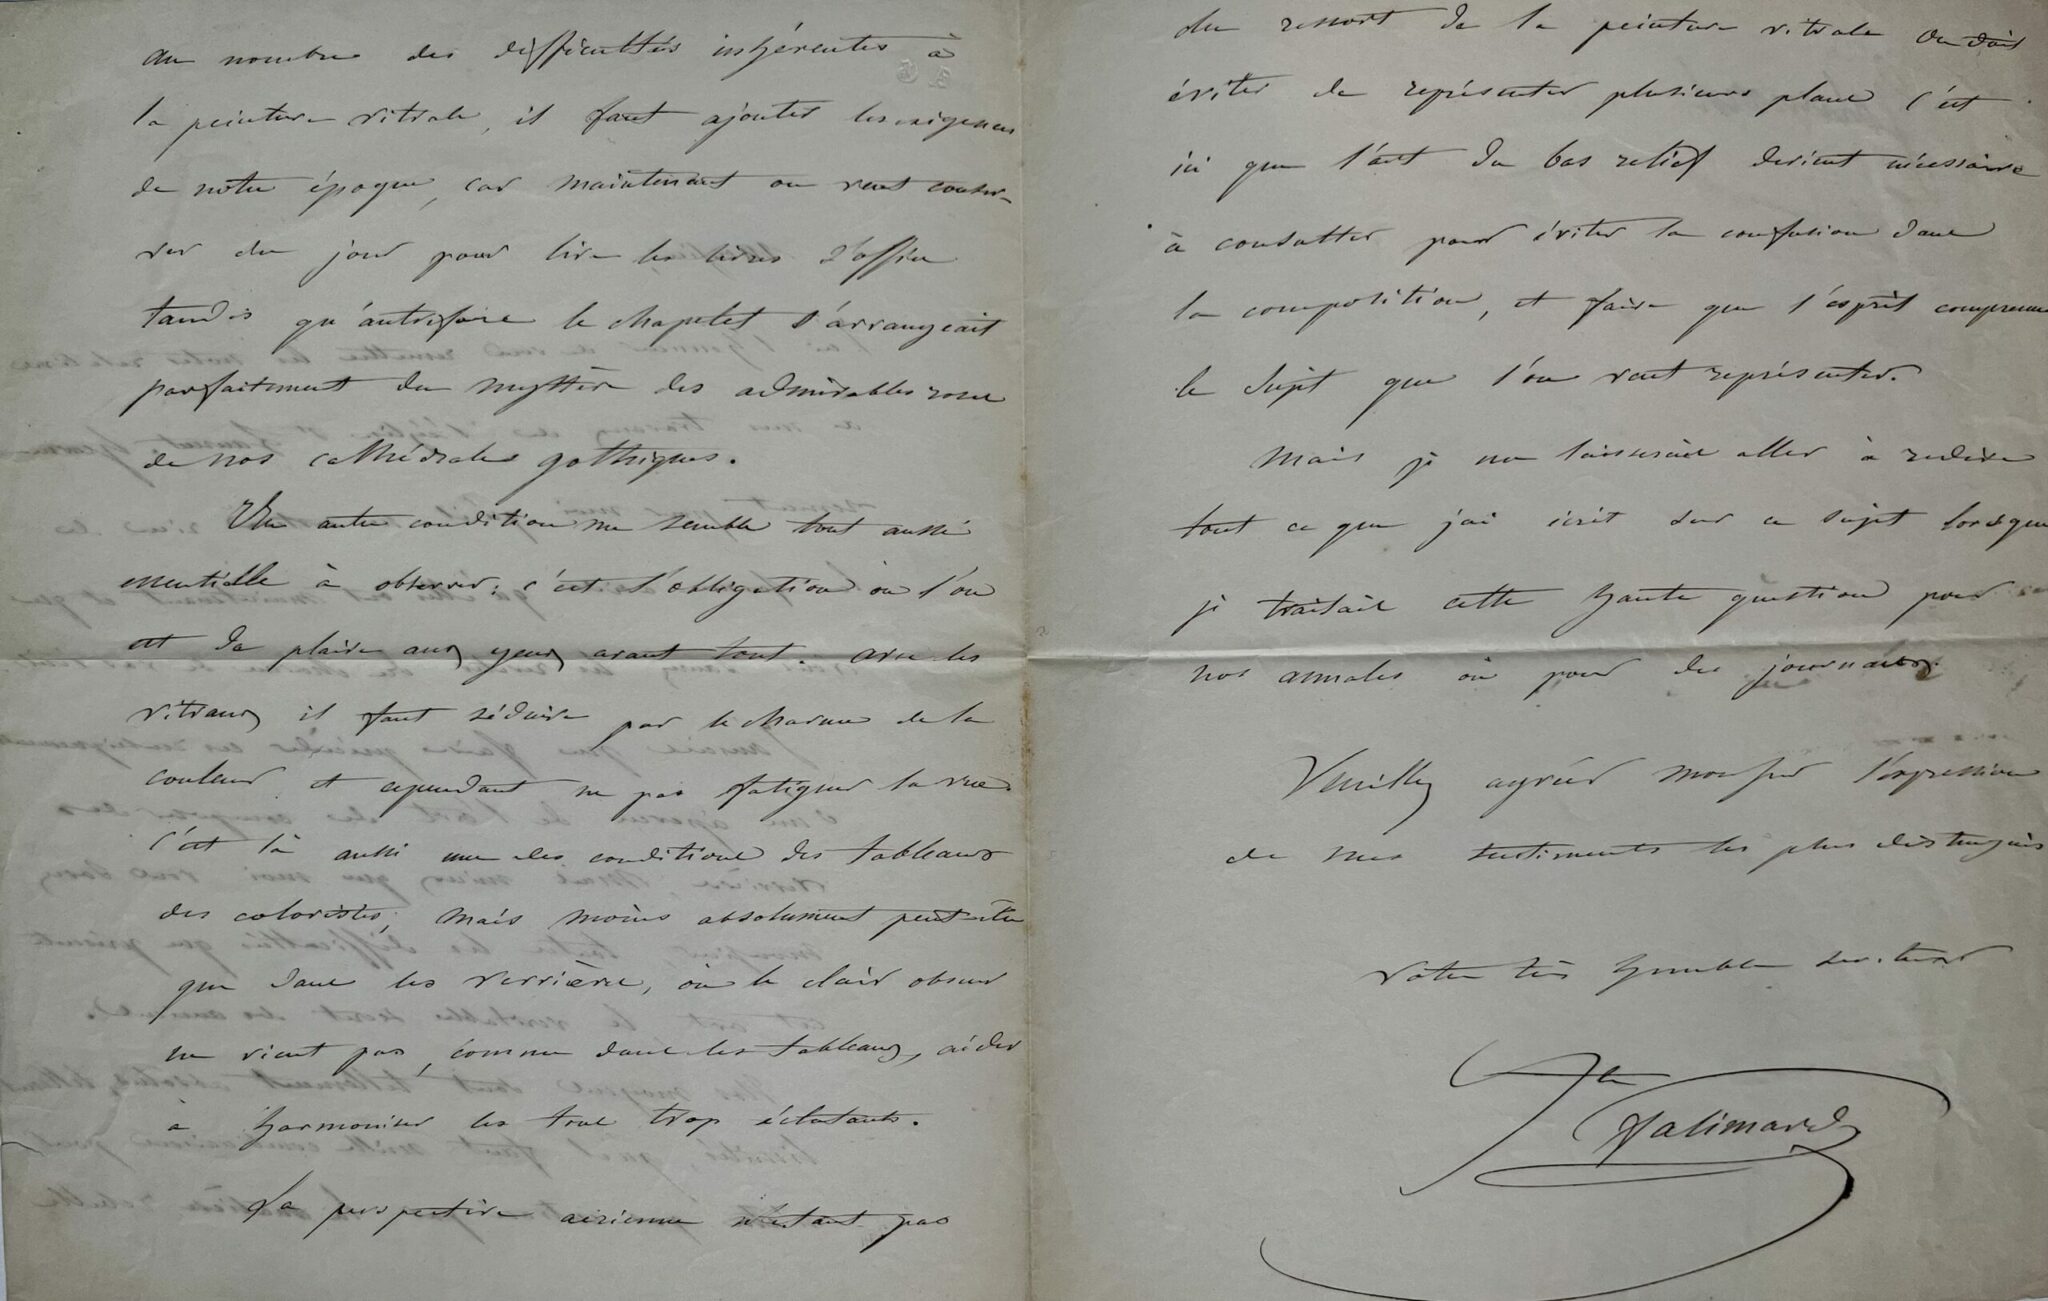 au nombre des difficultés inhérentes à
la peinture vitrale, il faut ajouter les exigences
de notre époque, car maintenant on veut conser-
ver du jour pour lire les livres d'office
tandis qu'autrefois le chapelet s'arrangeait
parfaitement du mystère des admirables roses
de nos cathédrales gothiques.
Une autre condition me semble tout aussi
essentielle à observer; c'est l'obligation où l'on
est de plaire aux yeux avant tout. avec les
vitraux il faut séduire par le charme de la
couleur et cependant ne pas fatiguer la vue
c'est là aussi une des conditions des tableaux
des coloristes, mais moins absolument peut-être
que dans les verrières, où le clair obscur
ne vient pas, comme dans les tableaux, aider
à harmoniser les tons trop éclatants.
La perspective aérienne n'étant pas
du ressort de la peinture vitrale on doit
éviter de représenter plusieurs plans c'est
ici que l'art du bas relief devient nécessaire
à consulter pour éviter la confusion dans
la composition, et faire que l'esprit comprenne
le sujet que l'on veut représenter.
Mais je me laisserais aller à redire
tout ce que j'ai écrit sur ce sujet lorsque
je traitais cette haute question pour
nos annales ou pour des journaux.
Veuillez agréer monsieur l'expression
de mes sentiments les plus distingués
Votre très humble serviteur
Galimard